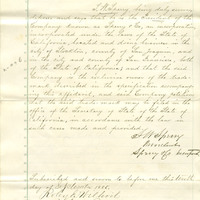 being duly sworn
deposes and says that he is the President of the
Company known as Sperry & Co., a corporation
incorporated under the laws of the State of
California, located and doing business in the
city of Stockton, county of San Joaquin, and
in the city and county of San Francisco, both
of the State of California; and that the said
Company is the exclusive owner of the trade-
mark described in the specification accompany-
ing this affidavit, and said Company
that the said trade-mark may be filed in the
office of the Secretary of State of the State of
California, in accordance with the law in
such case made and provided.
Sperry
President
Sperry & Co.
Subscribed and sworn to before me this
day of